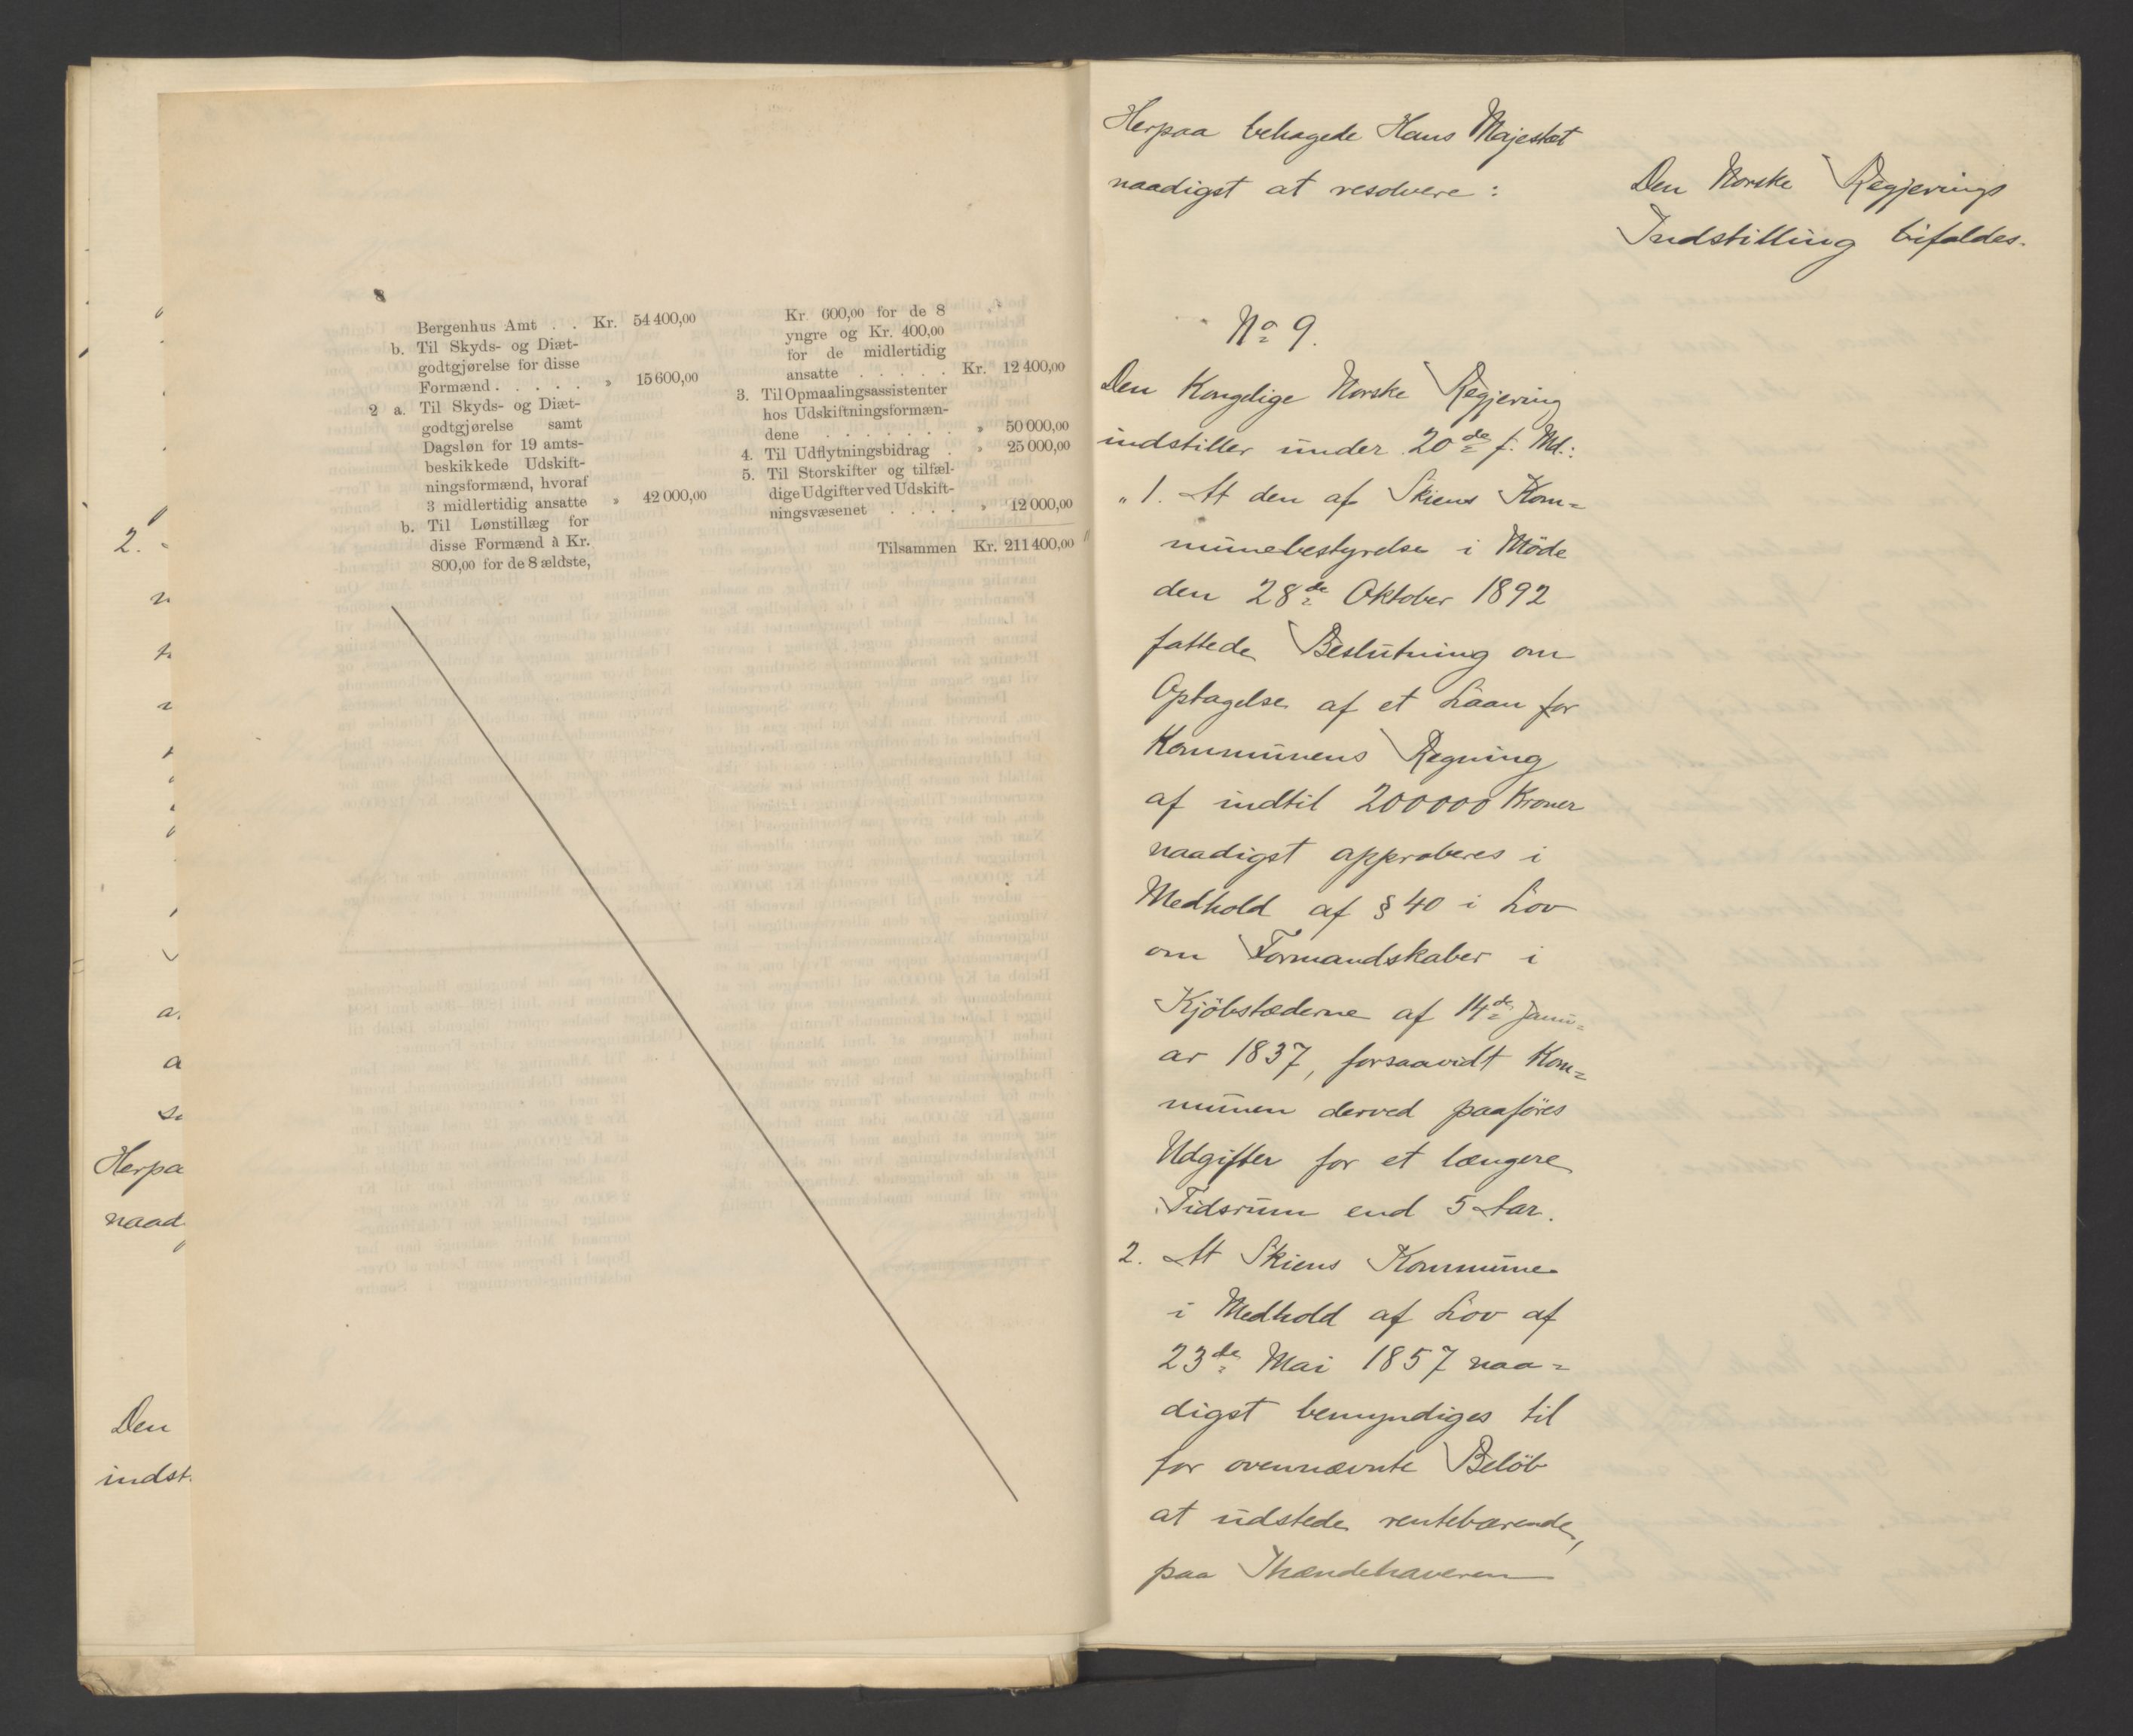 8
Bergenhus Amt . . Kr. 54 400,00
b. Til Skyds- og Diæt-
godtgjørelse for disse
Formænd . . . . . » 15 600,00
2 a. Til Skyds- og Diæt-
godtgjørelse samt
Dagsløn for 19 amts-
beskikkede Udskift-
ningsformænd, hvoraf
3 midlertidig ansatte » 42 000,00
b. Til Lønstillæg for
disse Formænd à Kr.
800,00 for de 8 ældste,
Kr. 600,00 for de 8
yngre og Kr. 400,00
for de midlertidig
ansatte . . . . . Kr. 12 400,00
3. Til Opmaalingsassistenter
hos Udskiftningsformæn-
dene . . . . . . . » 50 000,00
4. Til Udflytningsbidrag . » 25 000,00
5. Til Storskifter og tilfæl-
dige Udgifter ved Udskift-
ningsvæsenet . . . . » 12 000,00
Tilsammen Kr. 211 400,00 "
2.
Herpa
naad
Den
indst.
Herpaa behagede Hans Majestæt
naadigst at resolvere:
Den Norske Regjerings
Indstilling bifaldes.
No 9.
Den Kongelige Norske Regjering
indstiller under 20de f. Md.:
„1. At den af Skiens Kom=
munebestyrelse i Möde
den 28de Oktober 1892
fattede Beslutning om
Optagelse af et Laan for
Kommunens Regning
af indtil 200000 Kroner
naadigst approberes i
Medhold af § 40 i Lov
om Formandskaber i
Kjöbstæderne af 14de Janu=
ar 1837, forsaavidt Kom=
munen derved paaföres
Udgifter for et længere
Tidsrum end 5 Aar.
2. At Skiens Kommune
i Medhold af Lov af
23de Mai 1857 naa=
digst bemyndiges til
for ovennævnte Belöb
at udstede rentebærende,
paa Ihændehaveren